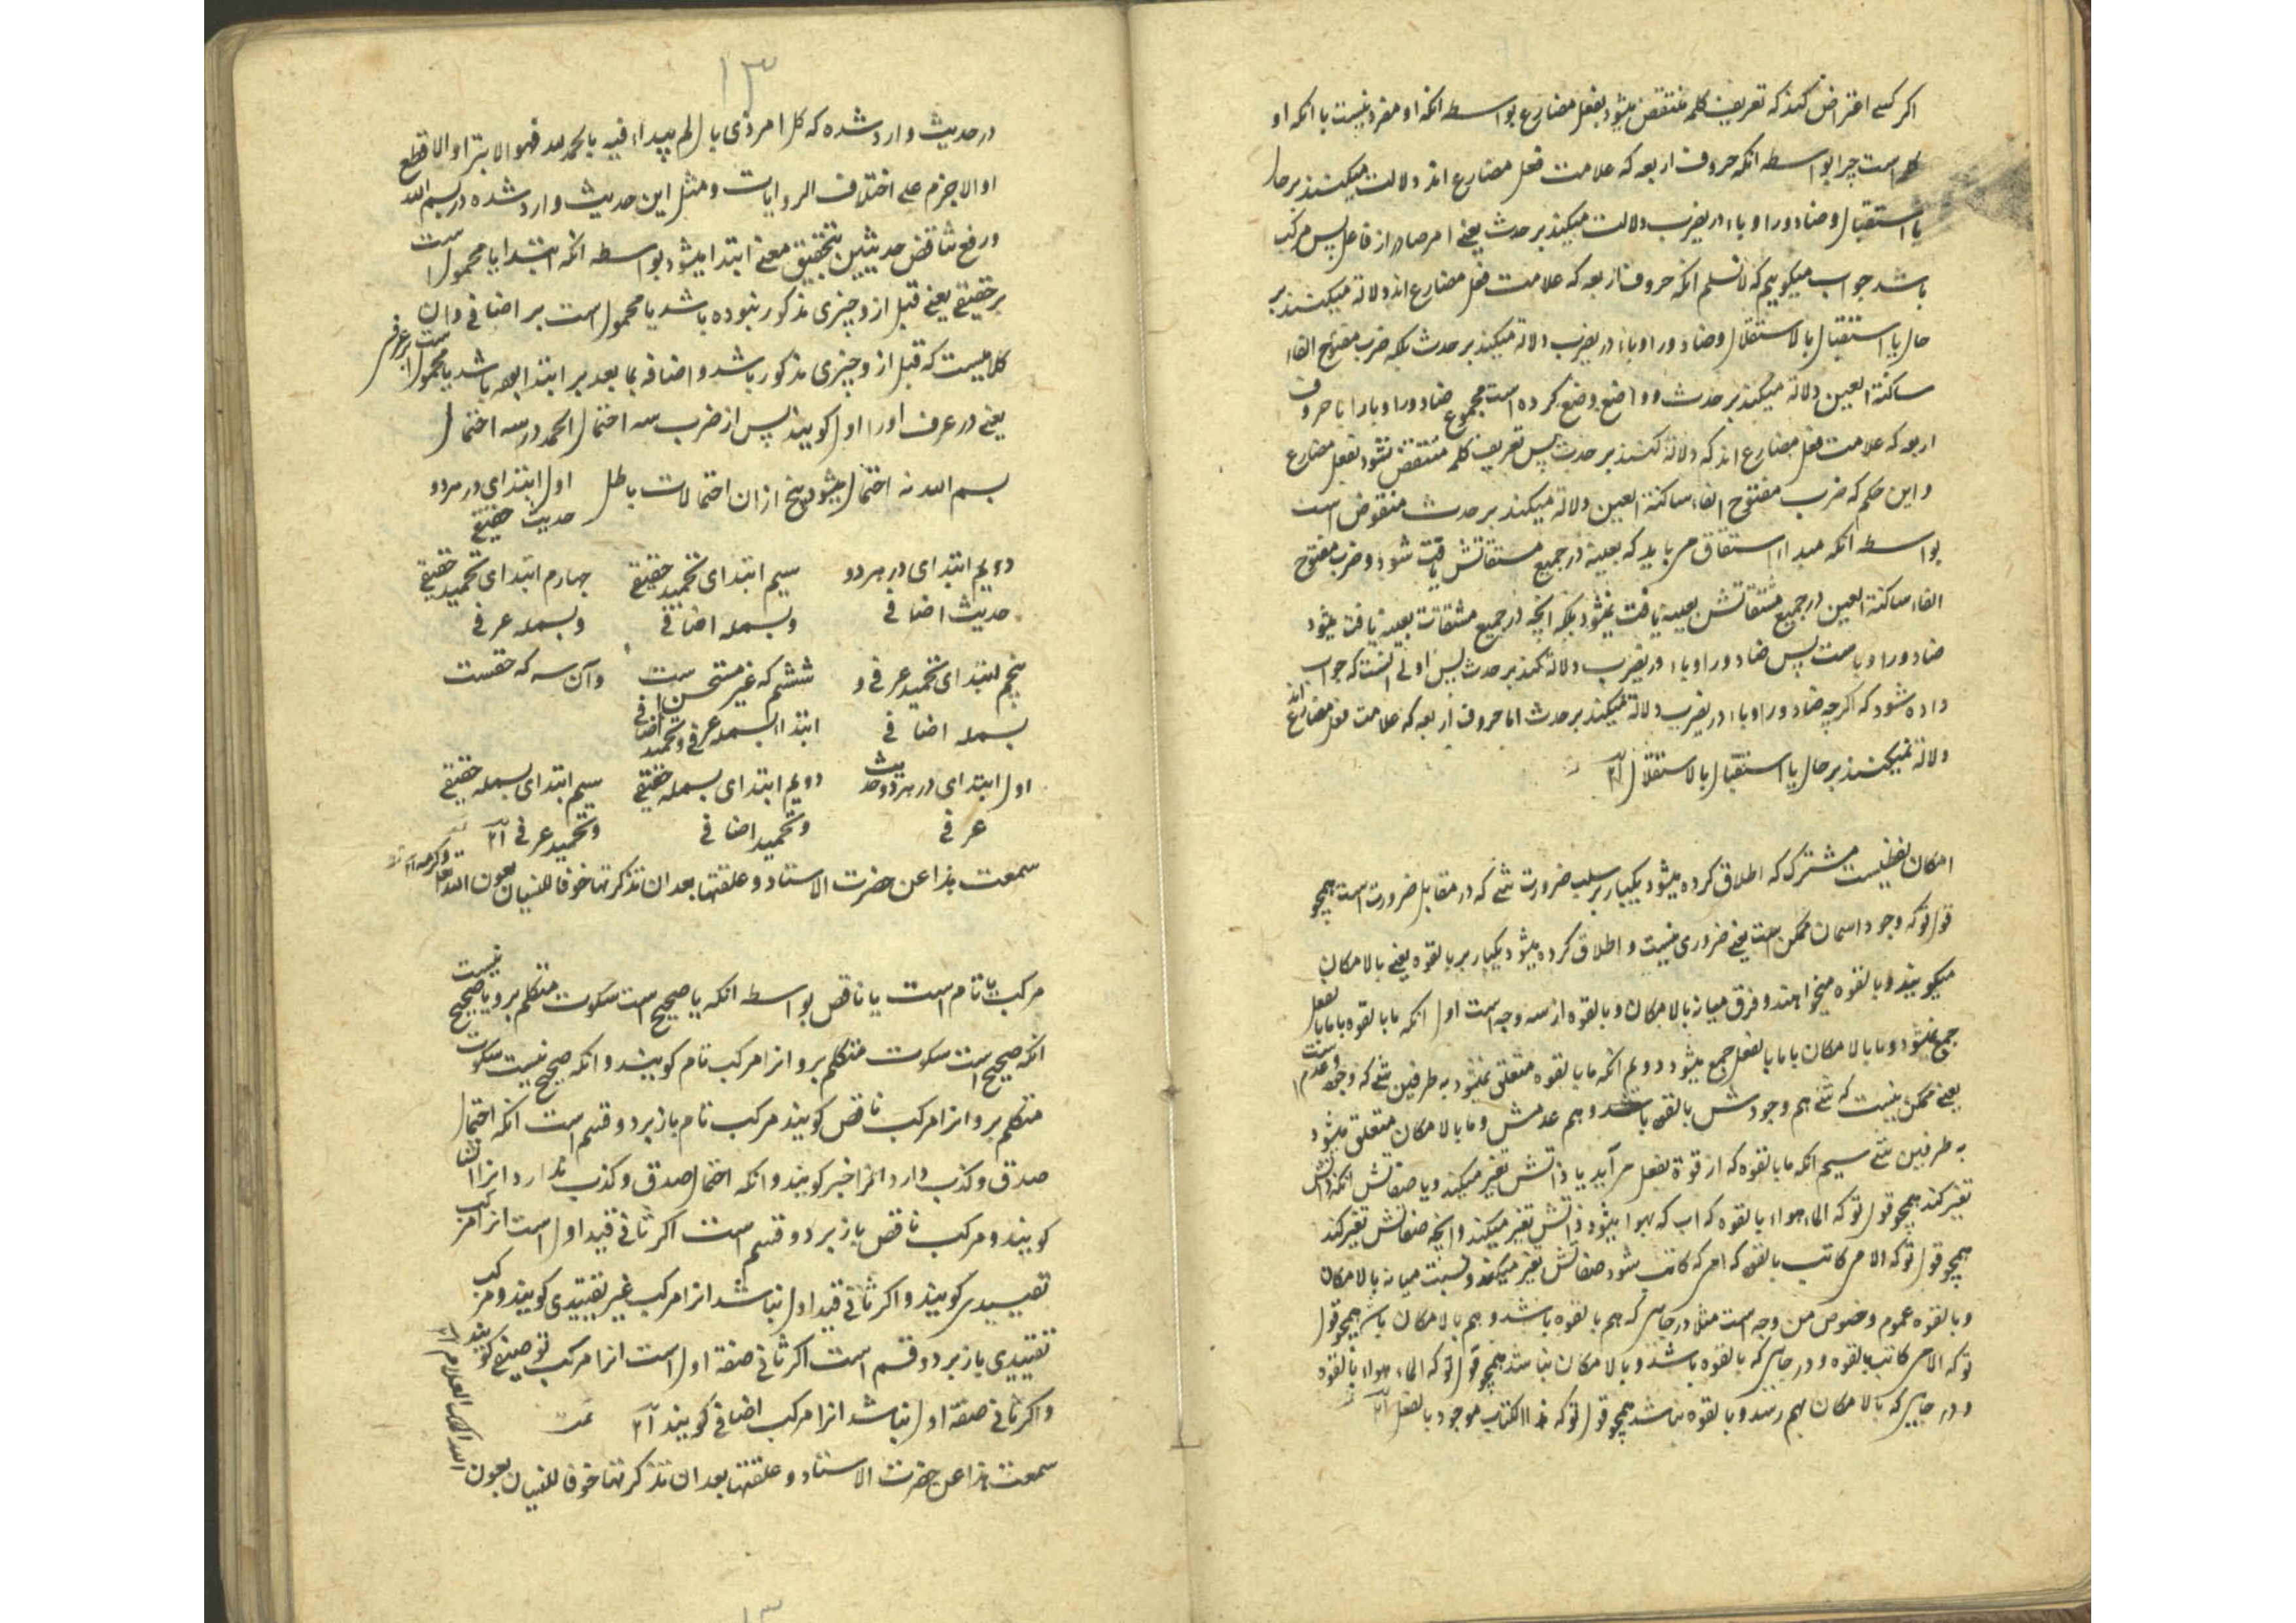 اکر کسے اعتراض کند که تعریف کلمه منتقض میشود بفعل مضارع بواسطه انکه او مفرد نیست با انکه او
کلمه است چرا بواسطه انکه حروف اربعه که علامت فعل مضارع اند دلالت میکنند بر حال
یا استقبال و ضاد و را و باء در یضرب دلالت میکند بر حدث یعنے امر صادر از فاعل پس مرکب
باشد جواب میکوییم که لا نسلم انکه حروف اربعه که علامت فعل مضارع اند دلالة میکنند بر
حال یا استقبال بالاستقلال و ضاد و را و باء در یضرب دلالة میکند بر حدث بلکه ضرب مفتوح الفاء
ساکنة العین دلالة میکند بر حدث و واضع وضع کرده است مجموع ضاد و را و با را با حروف
اربعه که علامت فعل مضارع اند که دلالة کنند بر حدث پس تعریف کلمه منتقض نشود بفعل مضارع
و این حکم که ضرب مفتوح الفاء ساکنة العین دلالة میکند بر حدث منقوض است
بواسطه انکه مبداء اشتقاق می باید که بعینه در جمیع مشتقاتش یافت شود و ضرب مفتوح
الفاء ساکنة العین در جمیع مشتقاتش بعینه یافت نمیشود بلکه انچه در جمیع مشتقات بعینه یافت میشود
ضاد و را و با ست پس ضاد و را و باء در یضرب دلالة کند بر حدث پس اولے انست که جواب
داده شود که اکرچه ضاد و را و باء در یضرب دلالة میکند بر حدث اما حروف اربعه که علامت فعل مضارع اند
دلالة نمیکنند بر حال یا استقبال بالاستقلال
امکان لفظیست مشترک که اطلاق کرده میشود یکبار بر سلب ضرورت شے که در مقابل ضرورت است همچو
قول تو که وجود اسمان ممکن است یعنے ضروری نیست و اطلاق کرده میشود یکبار بر بالقوه یعنے بالامکان
میکویند و بالقوه میخواهند و فرق میانه بالامکان و بالقوه از سه وجه است اول انکه ما بالقوه با ما بالفعل
جمع نمیشود و ما بالامکان با ما بالفعل جمع میشود دویم انکه ما بالقوه متعلق نمیشود به طرفین شے که وجود و عدم است
یعنے ممکن نیست که شے هم وجودش بالقوه باشد و هم عدمش و ما بالامکان متعلق میشود
به طرفین شے سیم انکه ما بالقوه که از قوة بفعل می آید یا ذاتش تغیر میکند و یا صفاتش انکه ذاتش
تغیر کند همچو قول تو که الماء هواء بالقوه که اب که هوا میشود ذاتش تغیر میکند و انچه صفاتش تغیر کند
همچو قول تو که الامی کاتب بالقوه که امی که کاتب شود صفاتش تغیر میکند و نسبت میانه بالامکان
و بالقوه عموم و خصوص من وجه است مثلا در جایی که هم بالقوه باشد و هم بالامکان باشد همچو قول
تو که الامی کاتب بالقوه و در جایی که بالقوه باشد و بالامکان نباشد همچو قول تو که الماء هواء بالقوه
و در جایی که بالامکان بهم رسد و بالقوه نباشد همچو قول تو که هذا الکتاب موجود بالفعل
۱۳
در حدیث وارد شده که کل امر ذی بال لم یبداء فیه بالحمد لله فهو الابتر او الاقطع
او الاجزم علے اختلاف الروایات و مثل این حدیث وارد شده در بسم الله
و رفع تناقض حدیثین بتحقیق معنے ابتدا میشود بواسطه انکه ابتدا یا محمول است
بر حقیقے یعنے قبل ازو چیزی مذکور نبوده باشد یا محمول است بر اضافے و ان
کلامیست که قبل ازو چیزی مذکور باشد و اضافه بما بعد بر ابتدا بوده باشد یا محمول است بر عرفی
یعنے در عرف او را اول کویند پس از ضرب سه احتمال الحمد در سه احتمال
بسم الله نه احتمال میشود پنج ازان احتمالات باطل اول ابتدای در هر دو
حدیث حقیقے
دویم ابتدای در هر دو سیم ابتدای تحمید حقیقے چهارم ابتدای تحمید حقیقے
حدیث اضافے و بسمله اضافے و بسمله عرفے
پنجم ابتدای تحمید عرفے و ششم که غیر مستحسن است و آن سه که حقست
بسمله اضافے ابتداء بسمله عرفے و تحمید اضافے
اول ابتدای در هر دو حدیث دویم ابتدای بسمله حقیقے سیم ابتدای بسمله حقیقے
عرفے و تحمید اضافے و تحمید عرفے
سمعت هذا عن حضرت الاستاد و علقتها بعد ان تذکرتها خوفا للنسیان بعون الله
مرکب یا تام است یا ناقص بواسطه انکه یا صحیح است سکوت متکلم برو یا صحیح نیست
انکه صحیح است سکوت متکلم برو انرا مرکب تام کویند و انکه صحیح نیست سکوت
متکلم برو انرا مرکب ناقص کویند مرکب تام باز بر دو قسم است انکه احتمال
صدق و کذب دارد انرا خبر کویند و انکه احتمال صدق و کذب ندارد انرا انشا
کویند و مرکب ناقص باز بر دو قسم است اکر ثانے قید اول است انرا مرکب
تقییدی کویند و اکر ثانے قید اول نباشد انرا مرکب غیر تقییدی کویند و مرکب
تقییدی باز بر دو قسم است اکر ثانے صفة اول است انرا مرکب توصیفے کویند
و اکر ثانے صفة اول نباشد انرا مرکب اضافے کویند
سمعت هذا عن حضرت الاستاد و علقتها بعد ان تذکرتها خوفا للنسیان بعون
الله الملک العلام